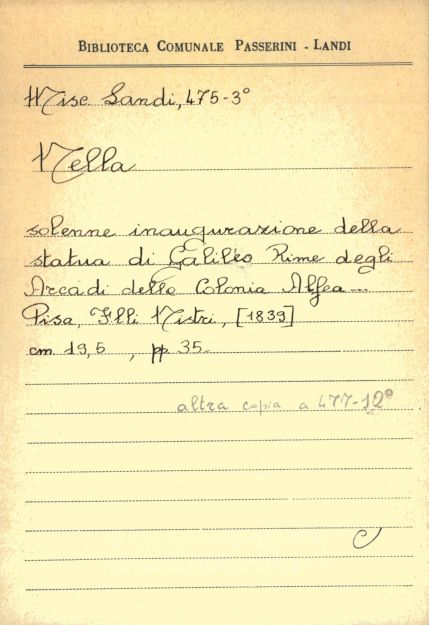 BIBLIOTECA COMUNALE PASSERINI - LANDI
Misc Landi, 475-3°
Nella
solenne inaugurazione della
statua di Galileo Rime degli
Arcadi della Colonia Alfea...
Pisa, F.lli Nistri, [1839]
cm 19,5 , pp 35.
altra copia a 477-12°